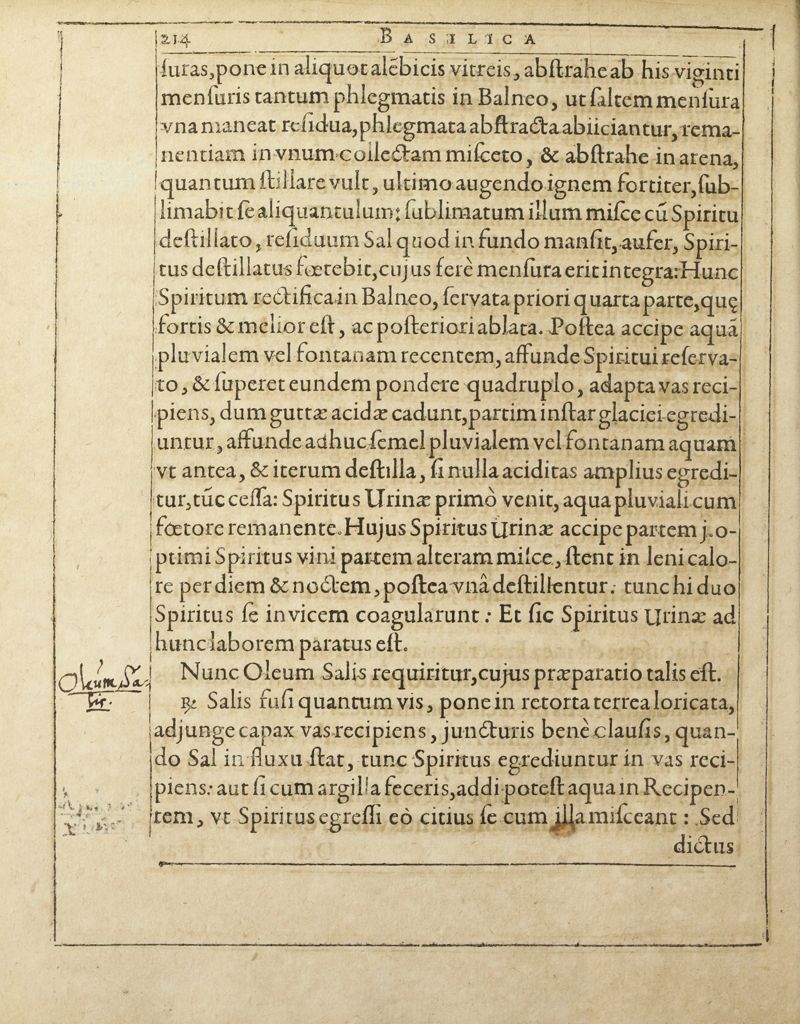 214 BASILICA
ſuras, pone in aliquot alēbicis vitreis, abſtrahe ab his viginti
menſuris tantum phlegmatis in Balneo, ut ſaltem menſura
vna maneat reſidua, phlegmata abſtracta abiiciantur, rema-
nentiam in vnum collectam miſceto, & abſtrahe in arena,
quantum ſtillare vult, ultimo augendo ignem fortiter, ſub-
limabit ſe aliquantulum: ſublimatum illum miſce cū Spiritu
deſtillato, reſiduum Sal quod in fundo manſit, aufer, Spiri-
tus deſtillatus fœtebit, cujus ferè menſura erit integra: Hunc
Spiritum rectifica in Balneo, ſervata priori quarta parte, quę
fortis & melior eſt, ac poſteriori ablata. Poſtea accipe aquā
pluvialem vel fontanam recentem, affunde Spiritui reſerva-
to, & ſuperet eundem pondere quadruplo, adapta vas reci-
piens, dum guttæ acidæ cadunt, partim inſtar glaciei egredi-
untur, affunde adhuc ſemel pluvialem vel fontanam aquam
vt antea, & iterum deſtilla, ſi nulla aciditas amplius egredi-
tur, tūc ceſſa: Spiritus Urinæ primò venit, aqua pluviali cum
fœtore remanente. Hujus Spiritus Urinæ accipe partem j. o-
ptimi Spiritus vini partem alteram miſce, ſtent in leni calo-
re per diem & noctem, poſtea vnâ deſtillentur: tunc hi duo
Spiritus ſe invicem coagularunt: Et ſic Spiritus Urinæ ad
hunc laborem paratus eſt.
Nunc Oleum Salis requiritur, cujus præparatio talis eſt.
Oleum Sa-
lis.
℞ Salis fuſi quantum vis, pone in retorta terrea loricata,
adjunge capax vas recipiens, juncturis benè clauſis, quan-
do Sal in fluxu ſtat, tunc Spiritus egrediuntur in vas reci-
piens: aut ſi cum argilla feceris, addi poteſt aqua in Recipen-
tem, vt Spiritus egreſſi eò citius ſe cum illa miſceant: Sed
dictus